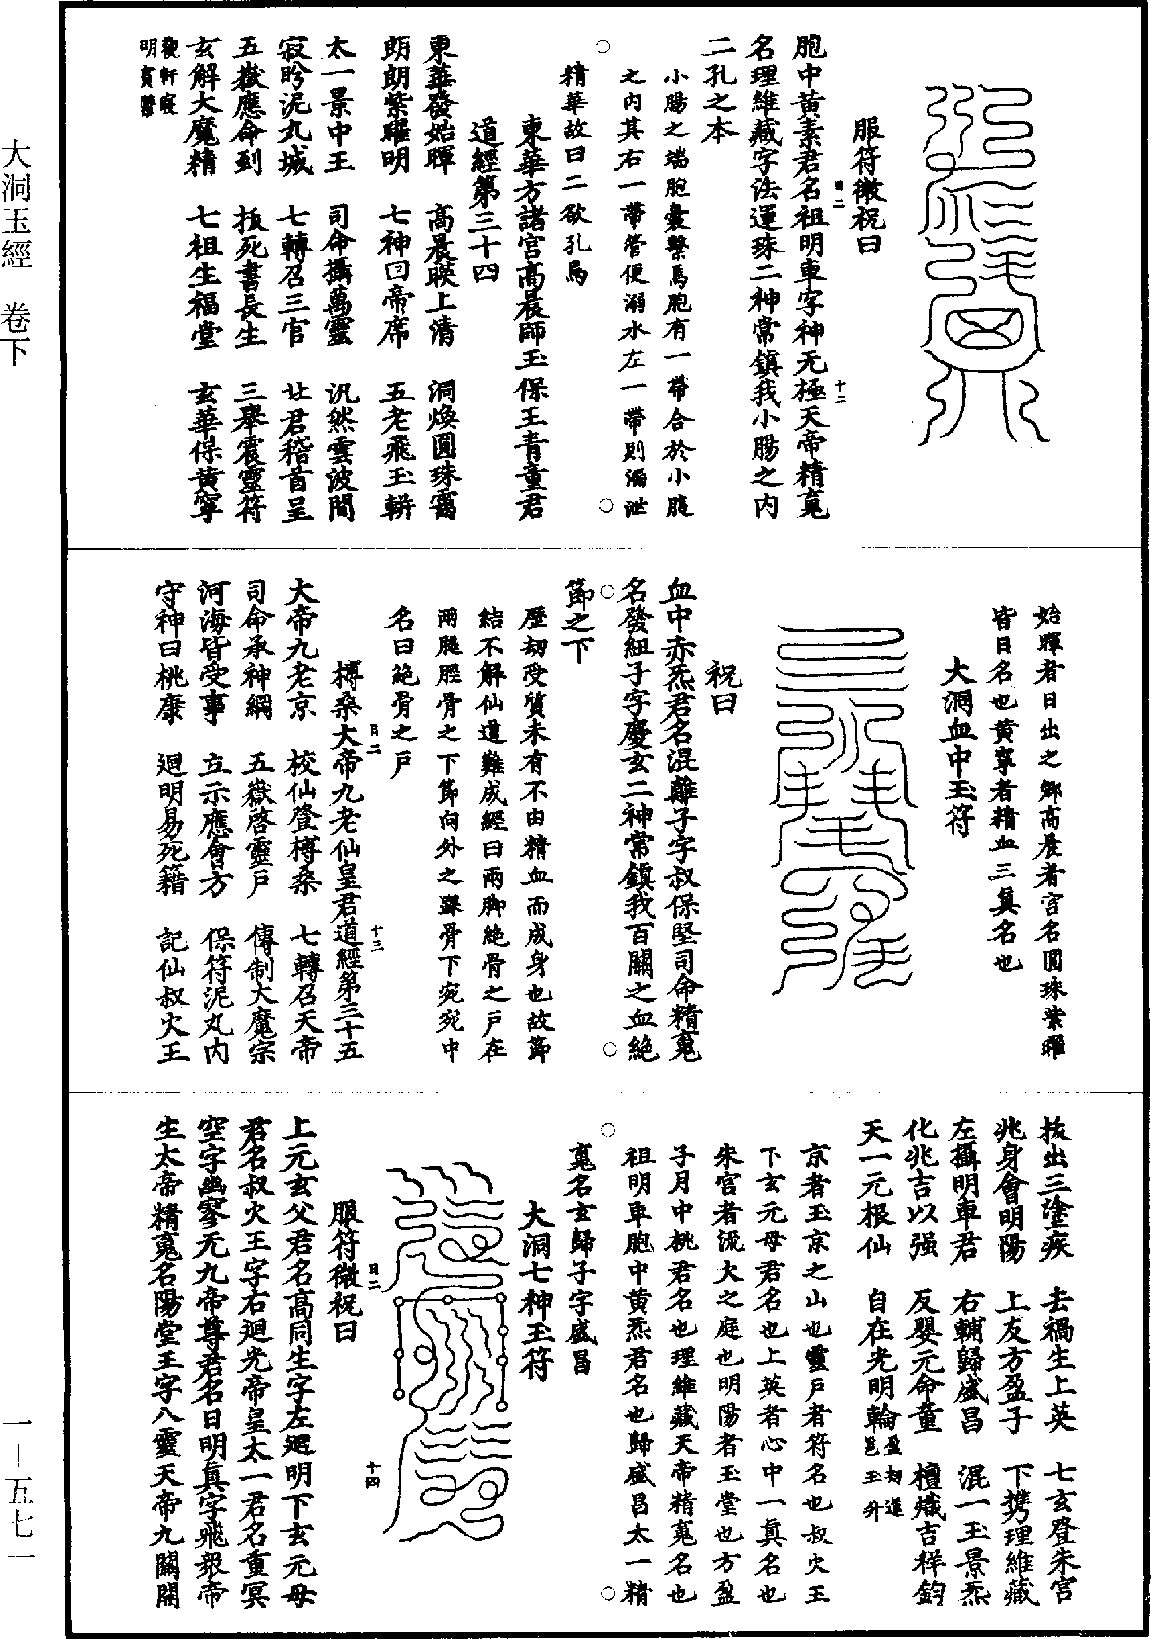 大洞玉經　卷下
一—五七一
服符微祝曰
胞中黃素君名祖明車字神无極天帝精𩲸
名理維藏字法運珠二神常鎮我小腸之內
二孔之本
小腸之端胞囊繫焉胞有一帶合於小腹
之內其右一帶管便溺水左一帶則漏泄
精華故曰二欲孔焉
東華方諸宮高晨師玉保王青童君
道經第三十四
東華發始暉　高晨映上清　洞煥圓珠
朗朗紫曜明　七神曰帝席　五老飛玉軿
太一景中王　司命攝萬靈　汎然雲波間
寂昣泥丸城　七轉召三官　廿君稽首呈
五嶽應命到　拔死書長生　三舉震靈符
玄解大魔精　七祖生福堂　玄華保黃寧
始暉者日出之鄉高晨者宮名圓珠紫曜
皆日名也黃寧者精血三真名也
大洞血中玉符
祝曰
血中赤炁君名混離子字叔保堅司命精𩲸
名發紐子字慶玄二神常鎮我百關之血絕
節之下
歷劫受質未有不由精血而成身也故節
結不解仙道難成經曰兩脚絕骨之戶在
兩腿脛骨之下節向外之踝骨下宛宛中
名曰絕骨之戶
榑桑大帝九老仙皇君道經第三十五
大帝九老京　校仙登榑桑　七轉召天帝
司命承神綱　五嶽啓靈戶　傳制大魔宗
河海皆受事　立示應會方　保符泥丸內
守神曰桃康　迴明易死籍　記仙叔火王
拔出三塗疾　去禍生上英　七玄登朱宮
兆身會明陽　上友方盈子　下携理維藏
左攝明車君　右輔歸盛昌　混一玉景炁
化兆吉以强　反嬰元命董　檀熾吉祥鈞
天一元根仙　自在光明輪
京者玉京之山也靈戶者符名也叔火王
下玄元母君名也上英者心中一真名也
朱宮者流火之庭也明陽者玉堂也方盈
子月中桃君名也理維藏天帝精𩲸名也
祖明車胞中黃炁君名也歸盛昌太一精
𩲸名玄歸子字盛昌
大洞七神玉符
服符微祝曰
上元玄父君名高同生字左迴明下玄元母
君名叔火王字右迴光帝皇太一君名重冥
空字幽寥无九帝尊君名日明真字飛報帝
生太帝精𩲸名陽堂王字八靈天帝九關開